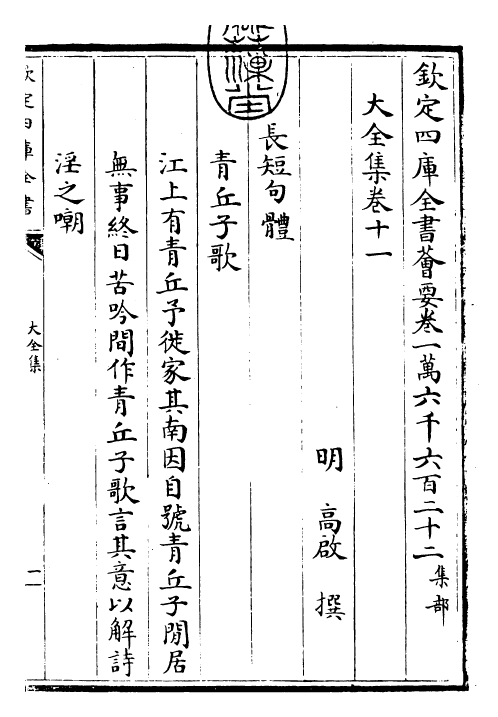 欽定四庫全書薈要卷一萬六千六百二十二 集部
大全集卷十一
明 高啟 撰
長短句體
青丘子歌
江上有青丘予徙家其南因自號青丘子閒居
無事終日苦吟間作青丘子歌言其意以解詩
淫之嘲
欽定四庫全書
大全集